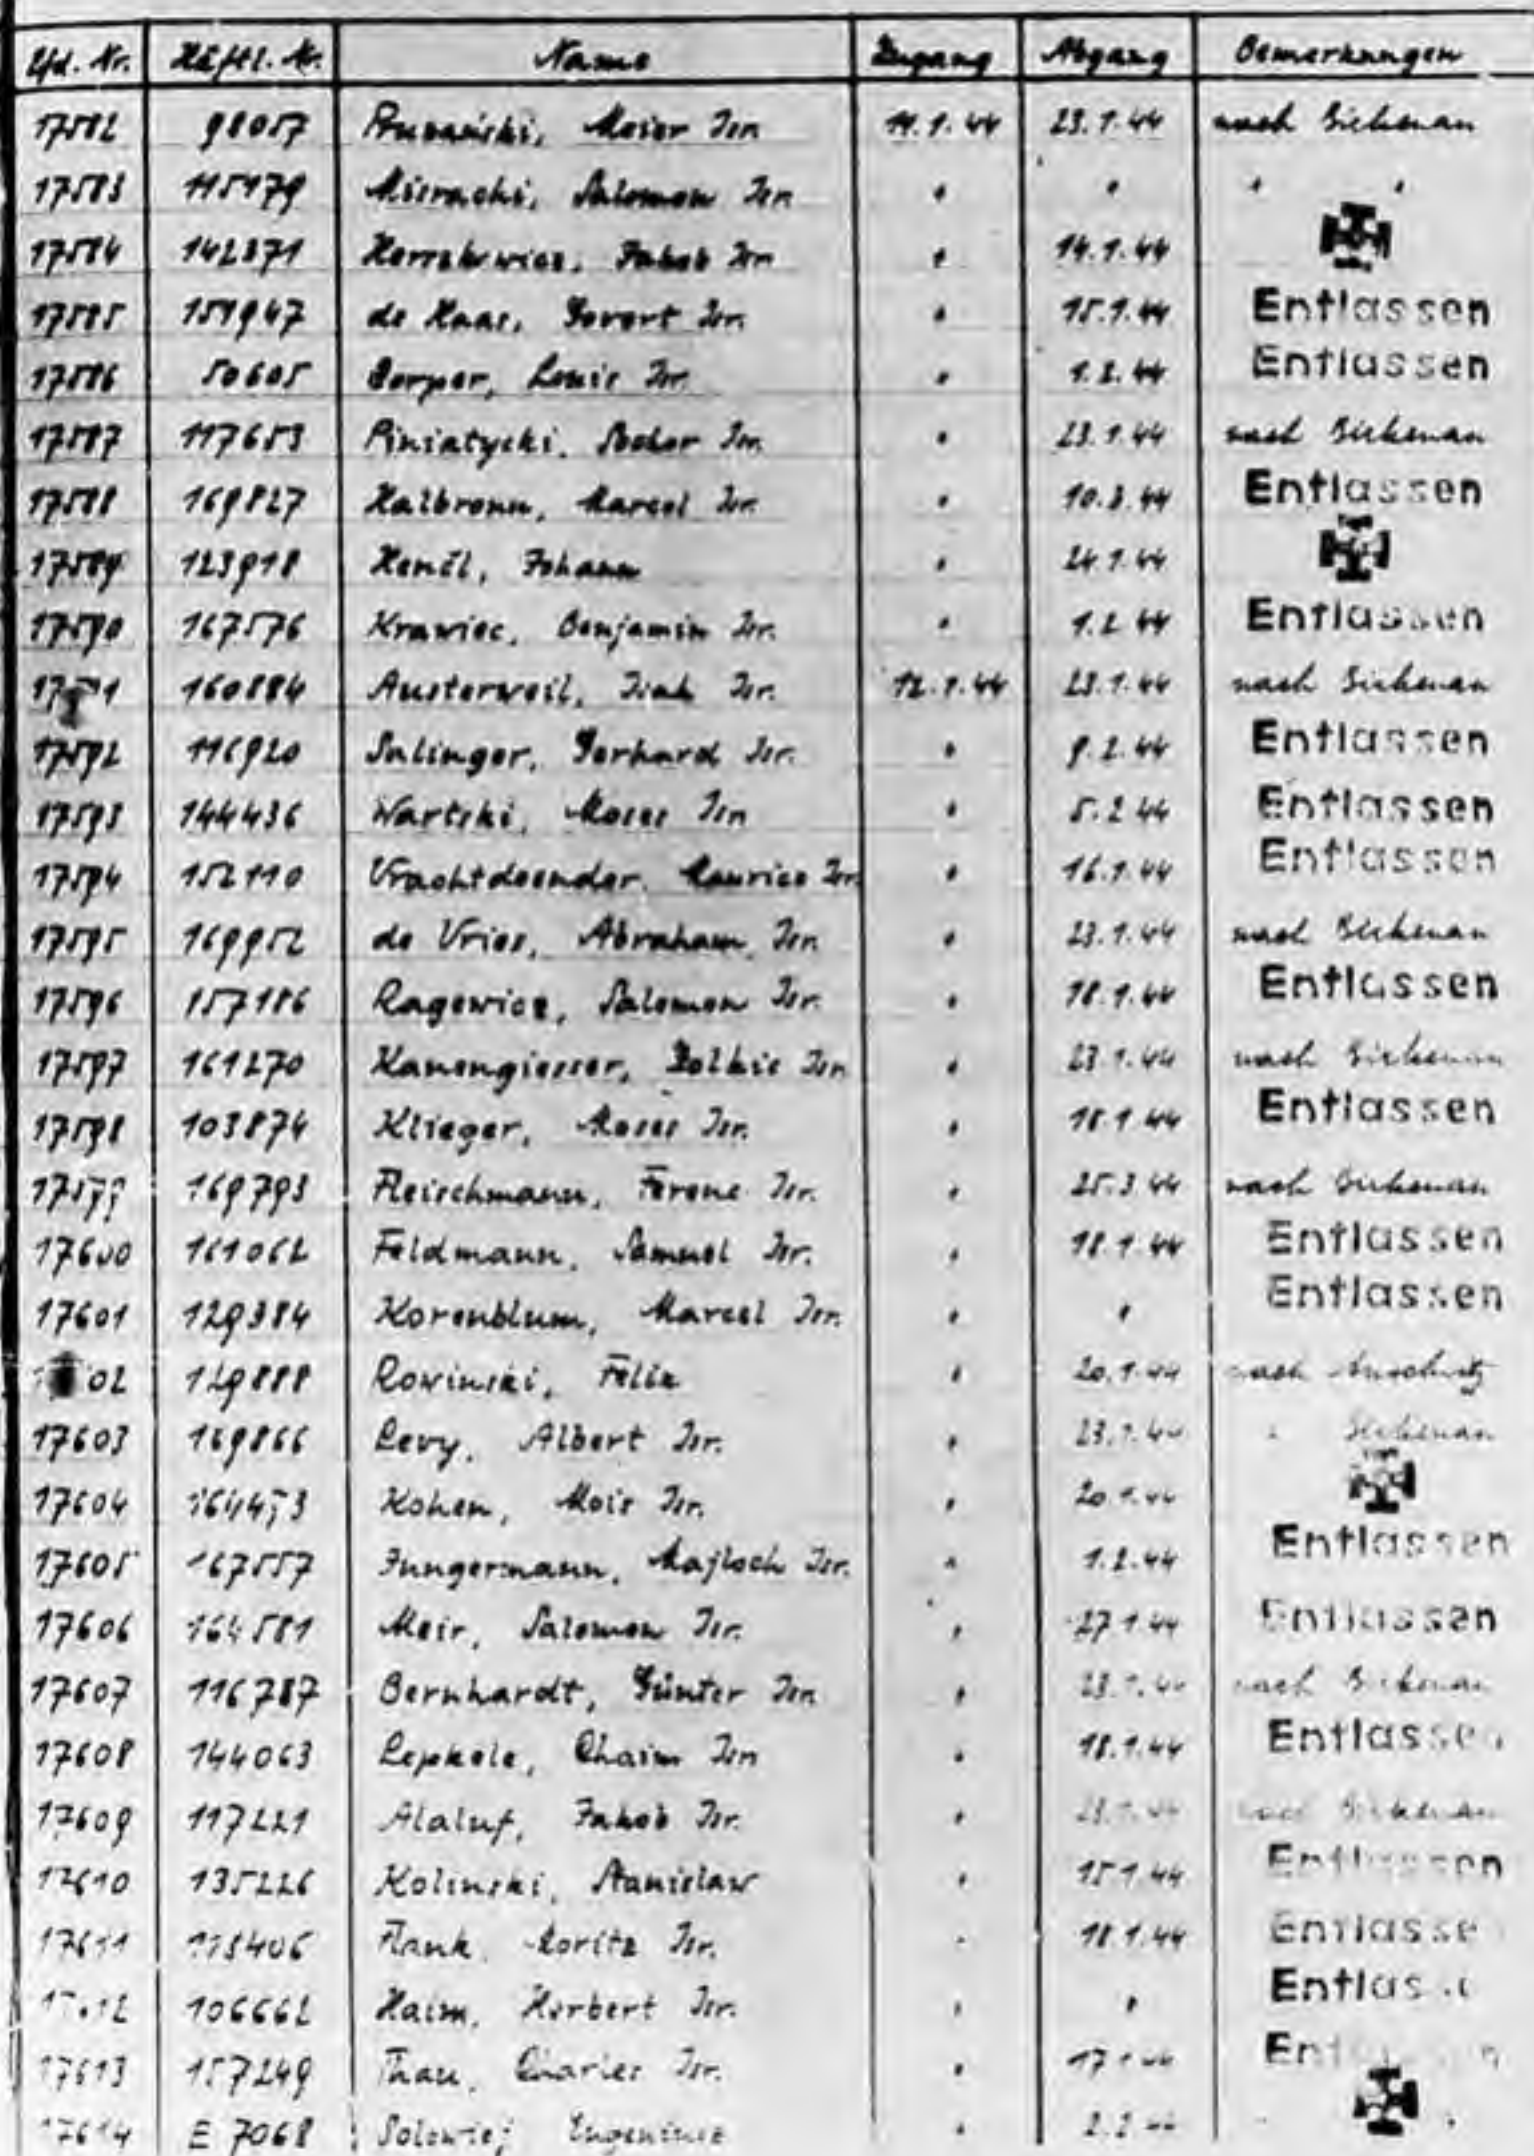 Lfd. Nr. Häftl. Nr. Name Zugang Abgang Bemerkungen
17582 98057 Meier Isr. 11.1.44 23.1.44 nach Birkenau
17583 115179 Misrachi, Salomon Isr. " " " "
17584 142371 Jakob Isr. " 14.1.44
17585 151947 de Haas, Govert Isr. " 15.1.44 Entlassen
17586 50605 Louis Isr. " 1.2.44 Entlassen
17587 117653 Piniatycki, Isr. " 23.1.44 nach Birkenau
17588 169827 Halbronn, Marcel Isr. " 10.3.44 Entlassen
17589 123918 Johann " 24.1.44
17590 167576 Krawiec, Benjamin Isr. " 1.2.44 Entlassen
160884 Austerweil, Isr. 12.1.44 23.1.44 nach Birkenau
17592 116920 Salinger, Gerhard Isr. " 9.2.44 Entlassen
17593 144436 Wartski, Moses Isr. " 5.2.44 Entlassen
17594 152110 Vrachtdoender, Maurice Isr. " 16.1.44 Entlassen
17595 169952 de Vries, Abraham, Isr. " 23.1.44 nach Birkenau
17596 157186 Ragewicz, Salomon Isr. " 18.1.44 Entlassen
17597 161270 Kanengiesser, Isr. " 23.1.44 nach Birkenau
17598 103874 Klieger, Moses Isr. " 18.1.44 Entlassen
17599 169793 Fleischmann, Ferenc Isr. " 25.3.44 nach Birkenau
17600 161062 Feldmann, Samuel Isr. " 18.1.44 Entlassen
17601 129384 Korenblum, Marcel Isr. " " Entlassen
129888 Rowinski, Felix " 20.1.44 nach Auschwitz
17603 169866 Levy, Albert Isr. " 23.1.44 " Birkenau
17604 Kohen, Mois Isr. " 20.1.44
17605 167557 Jungermann, Majloch Isr. " 1.2.44 Entlassen
17606 164581 Meir, Salomon Isr. " 27.1.44 Entlassen
17607 116787 Bernhardt, Günter Isr. " 23.1.44 nach Birkenau
17608 144063 Lepkole, Chaim Isr. " 18.1.44 Entlassen
17609 117221 Alaluf, Jakob Isr. " 23.1.44 nach Birkenau
17610 135226 Kolinski, Stanislaw " 15.1.44 Entlassen
17611 Moritz Isr. " 18.1.44 Entlassen
106662 Haim, Herbert Isr. " " Entlassen
17613 157249 Thau, Charles Isr. " 17.1.44 Entlassen
17614 E 7068 " 2.2.44